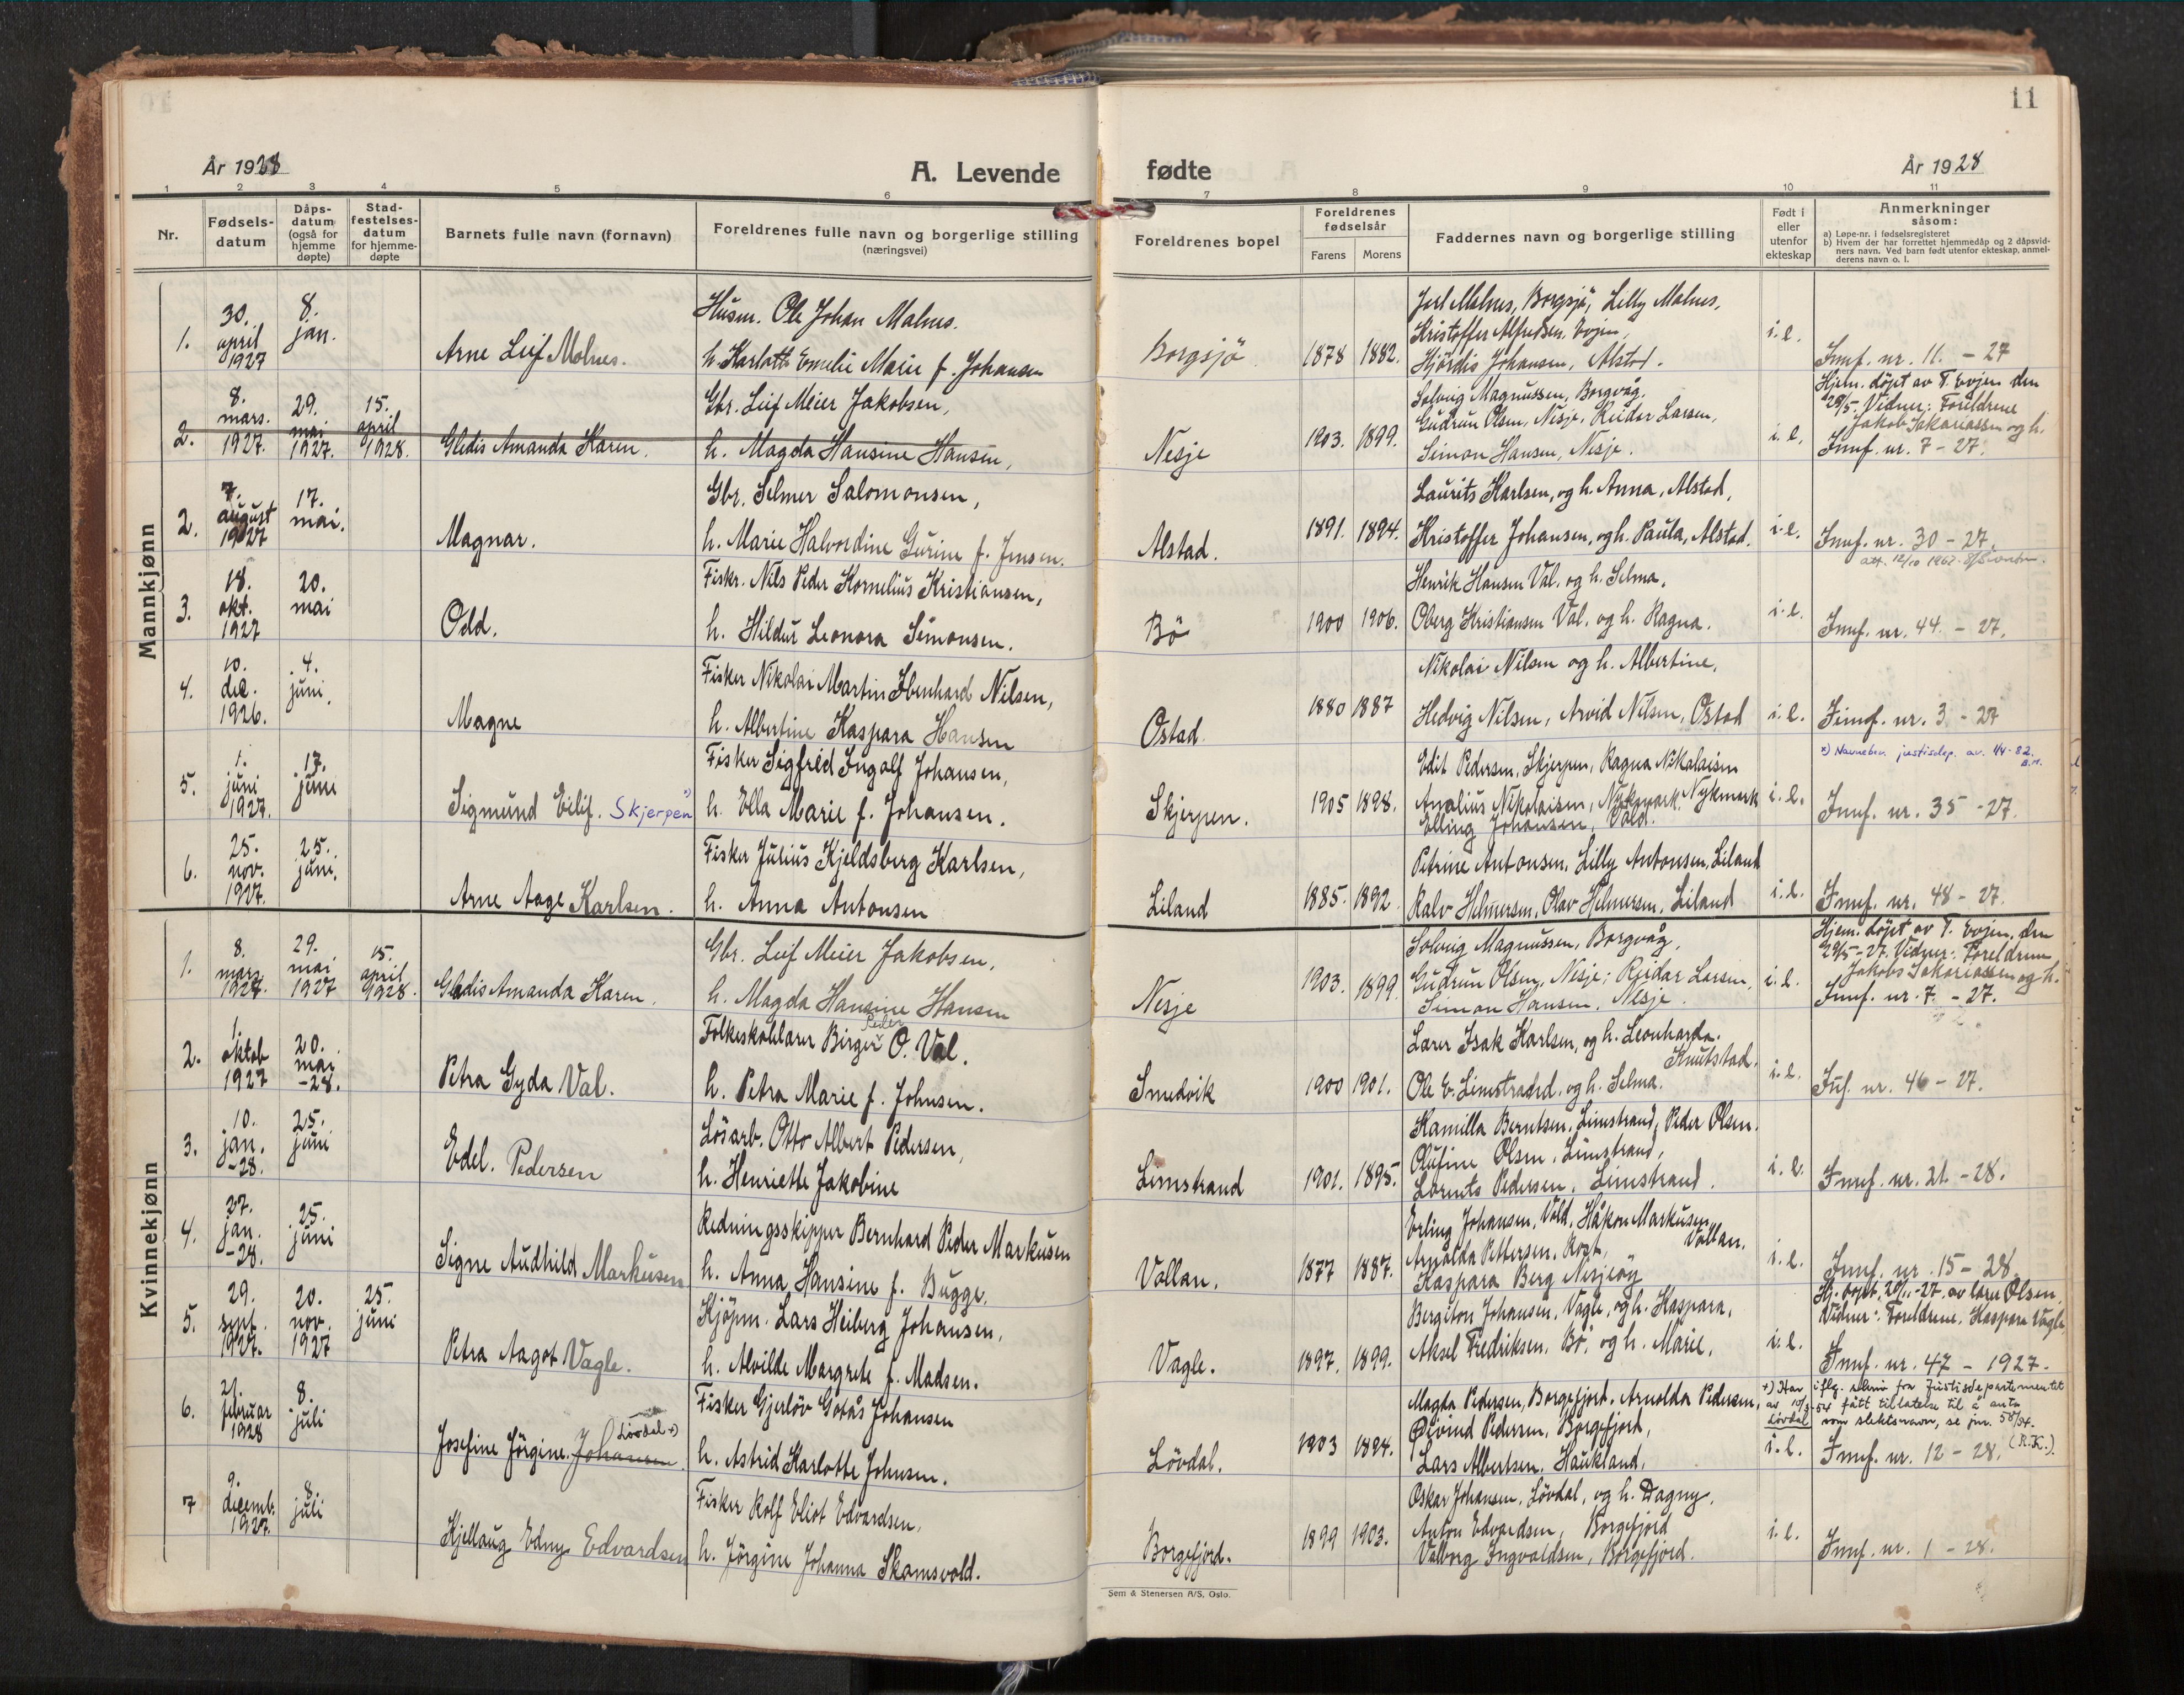 11
År 1928
A. Levende fødte
År 1928
1 2 3 4 5 6 7 8 9 10 11
Nr.
Fødsels-
datum
Dåps-
datum
(også for
hjemme
døpte)
Stad-
festelses-
datum
for hjemme-
døpte
Barnets fulle navn (fornavn)
Foreldrenes fulle navn og borgerlige stilling
(næringsvei)
Foreldrenes bopel
Foreldrenes
fødselsår
Farens
Morens
Faddernes navn og borgerlige stilling
Født i
eller
utenfor
ekteskap
Anmerkninger
såsom:
a) Løpe-nr. i fødselsregisteret
b) Hvem der har forrettet hjemmedåp og 2 dåpsvid-
ners navn. Ved barn født utenfor ekteskap, anmel-
derens navn o. l.
Mannkjønn
1.
30.
april
1927
8.
jan.
Arne Leif Malnes.
Husm. Ole Johan Malnes.
h. Karlotte Emelie Marie f. Johansen
Borgsjö
1878
1882.
Malnes, Borgsjö, Lilly Malnes,
Kristoffer Alfredsen, Evjen,
Hjördis Johansen, Alstad.
i. e.
Innf. nr. 11. - 27
2.
8.
mars.
1927.
29.
mai
1927.
15.
april
1928.
Gledis Amanda Karen.
Gbr. Leif Meier Jakobsen,
h. Magda Hansine Hansen,
Nesje
1903.
1899.
Solveig Magnussen, Borgvåg.
Gudrun Olsen, Nesje, Reidar Larsen,
Simon Hansen, Nesje.
i. e.
Hjem. döpt av T. Evjen den
29/5. Vidner: Foreldrene
Jakob Sakariassen og h.
Innf. nr. 7 - 27.
2.
7.
august
1927
17.
mai.
Magnar.
Gbr. Selmer Salomonsen,
h. Marie Halvordine Gurine f. Jensen.
Alstad.
1891.
1894.
Laurits Karlsen, og h. Anna, Alstad,
Kristoffer Johansen, og h. Paula, Alstad.
i. e.
Innf. nr. 30 - 27.
att. 12/10 1967.
3.
18.
okt.
1927
20.
mai
Odd.
Fiskr. Nils Peder Kornelius Kristiansen,
h. Hildur Leonora Simonsen.
Bö
1900
1906.
Henrik Hansen Val. og h. Selma.
Oberg Kristiansen Val. og h. Ragna.
i. e.
Innf. nr. 44. - 27.
4.
10.
des.
1926.
4.
juni.
Magne
Fisker Nikolai Martin Ebenhard Nilsen,
h. Albertine Kaspara Hansen
Ostad.
1880
1887
Nikolai Nilsen og h. Albertine,
Hedvig Nilsen, Arvid Nilsen, Ostad
i. e.
Innf. nr. 3 - 27
5.
1.
juni
1927.
17.
juni
Sigmund Eilif. Skjerpen x)
Fisker Sigfred Ingolf Johansen,
h. Ella Marie f. Johansen.
Skjerpen.
1905
1898.
Edit Pedersen, Skjerpen, Ragna Nikolaisen
Analius Nikolaisen, Nykmark. Nykmark
Elling Johansen, Vold.
i. e.
x) Navnebev. justisdep. av. 4/4-82.
B.M.
Innf. nr. 35 - 27.
6.
25.
nov.
1927.
25.
juni.
Arne Aage Karlsen.
Fisker Julius Kjeldsberg Karlsen,
h. Anna Antonsen
Liland
1885.
1892
Petrine Antonsen, Lilly Antonsen, Liland
Ralv Helmersen, Olav Helmersen, Liland
i. e.
Innf. nr. 48 - 27.
Kvinnekjønn
1.
8.
mars.
1927.
29.
mai
1927
15.
april
1928.
Gledis Amanda Karen.
Gbr. Leif Meier Jakobsen,
h. Magda Hansine Hansen
Nesje
1903.
1899
Solveig Magnussen, Borgvåg,
Gudrun Olsen, Nesje; Reidar Larsen,
Simon Hansen, Nesje.
i. e.
Hjem. döpt av T. Evjen, den
29/5-27. Vidner: Foreldrene
Jakobs Sakariassen og h.
Innf. nr. 7. - 27.
2.
1.
oktob
1927
20.
mai
-28.
Petra Gyda Val.
Folkeskolelærer Birger Peder O. Val.
h. Petra Marie f. Johnsen.
Smedvik
1900
1901.
Lærer Isak Karlsen, og h. Leonharda.
Knutstad.
Ole E. Limstrand. og h. Selma.
i. e.
Inf. nr. 46 - 27.
3.
10.
jan.
-28.
25.
juni
Edel. Pedersen
Lösarb. Otto Albert Pedersen,
h. Henriette Jakobine
Limstrand
1901.
1895.
Kamilla Berntsen, Limstrand, Peder Olsen.
Olufine Olsen, Limstrand,
Lorents Pedersen, Limstrand.
i. e.
Innf. nr. 21. - 28.
4.
27.
jan.
-28.
25.
juni
Signe Audhild Markusen
Redningsskipper Bernhard Peder Markusen
h. Anna Hansine f. Bugge.
Vollan.
1877
1887.
Erling Johansen, Vold, Håkon Markusen,
Vollan.
Arnolda Pettersen, Rost,
Kaspara Berg Nesjeöy
i. e.
Innf. nr. 15 - 28.
5.
29.
sept.
1927.
20.
nov.
1927
25.
juni
Petra Aagot Vagle.
Kjöpm. Lars Heiberg Johansen,
h. Alvilde Margrete f. Madsen.
Vagle.
1897.
1899.
Bergiton Johansen, Vagle, og h. Kaspara,
Aksel Fredriksen. Bö. og h. Marie.
i. e.
Hj. döpt, 20/11-27. av lærer Olsen.
Vidner: Foreldrene, Kaspara Vagle
Innf. nr. 47 - 1927.
6.
21.
februar
1928
8.
juli
Josefine Jörgine. Johansen. Lövdal +)
Fisker Gjerlöv Gotås Johansen
h. Astrid Karlotte Johnsen.
Lövdal.
1903
1894.
Magda Pedersen, Borgefjord. Arnolda Pedersen,
Öivind Pedersen, Borgefjord,
Lars Albertsen, Haukland.
i. e.
+) Har iflg. skriv fra Justisdepartementet
av 10/3-54 fått tillatelse til å anta
Lövdal som slektsnavn, se jnr. 58/54.
(R.K.).
Innf. nr. 12 - 28.
7
9.
decemb.
1927.
8.
juli
Kjellaug Edny Edvardsen
Fisker Rolf Eliot Edvardsen,
h. Jörgine Johanna Skamsvold.
Borgefjord.
1899
1903.
Oskar Johansen, Lövdal, og h. Dagny.
Anton Edvardsen, Borgefjord
Valborg Ingvaldsen, Borgefjord.
i. e.
Innf. nr. 1 - 28.
Sem & Stenersen A/S, Oslo.